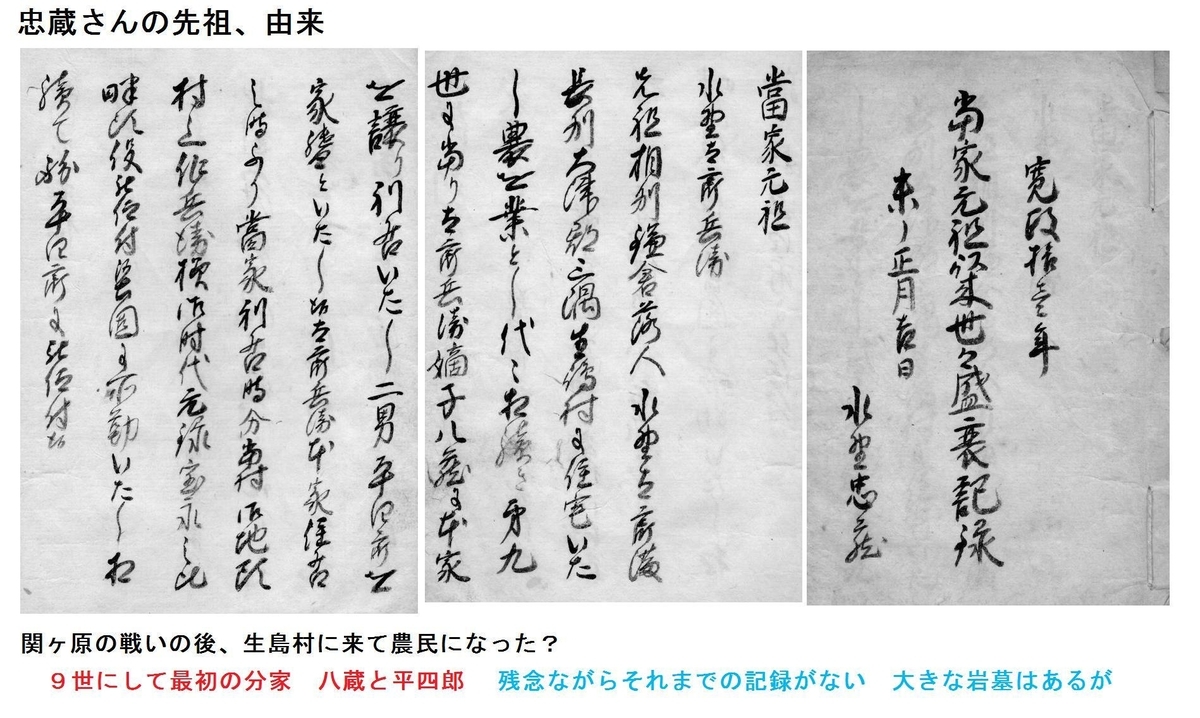 忠蔵さんの先祖、由来
寛政拾壱年
当家元祖以来世々盛衰記録
未ノ正月吉日
水野忠蔵
當家元祖
水野 郎兵衛
先祖相州鎌倉落人 水野 郎
長州大津郡三隅生嶋村ニ住宅いた
し農業とし代々相続き第九
世ニ当り 郎兵衛嫡子八蔵ニ本家
を譲り別居いたし二男平四郎を
家督といたし候 郎兵衛本家住居
之時より當家別居時分 村御地頭
村上作兵衛様御時代元禄宝永之比
畔頭役被仰付堅固ニ 勤いたし相
続て 平四郎ニ被仰付候
関ヶ原の戦いの後、生島村に来て農民になった？
９世にして最初の分家　八蔵と平四郎　残念ながらそれまでの記録がない　大きな岩墓はあるが